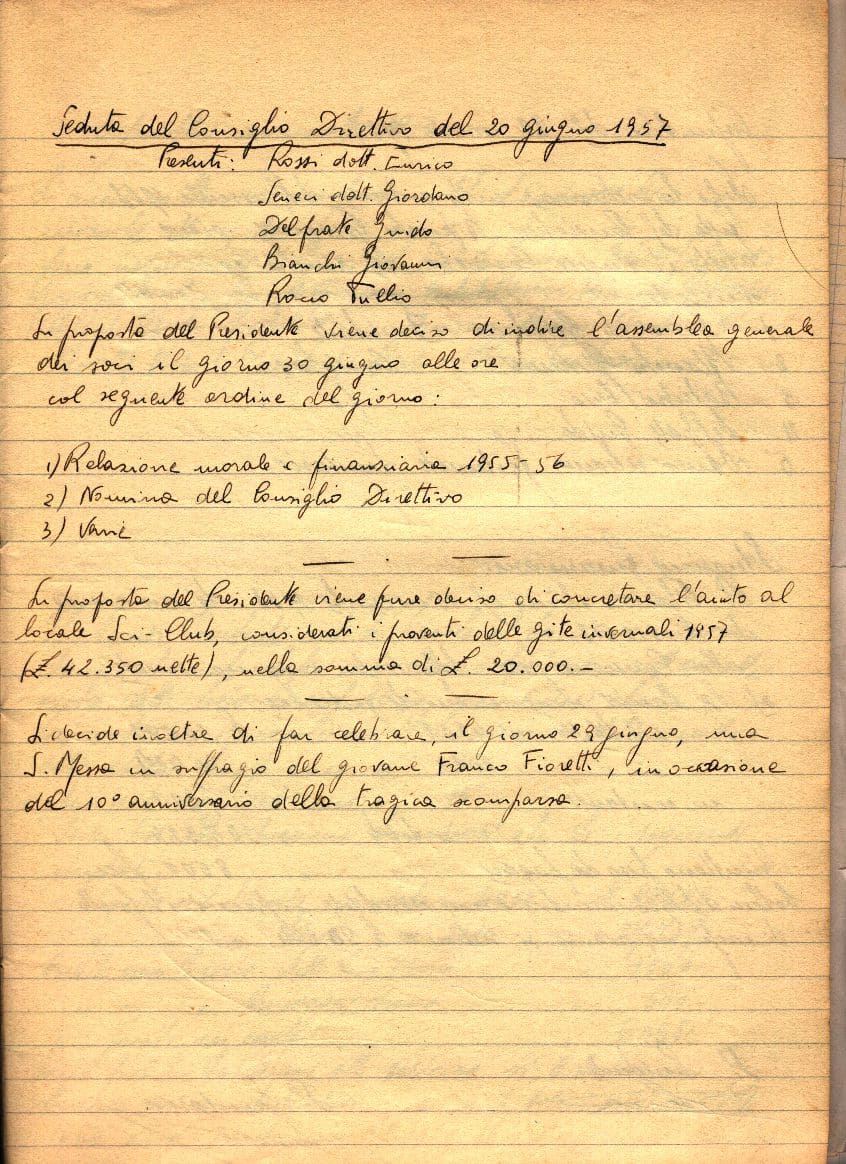 Seduta del Consiglio Direttivo del 20 giugno 1957
Presenti: Rossi dott. Enrico
Seneci dott. Giordano
Delfrate Guido
Bianchi Giovanni
Rocco Tullio
Su proposta del Presidente viene deciso di indire l'assemblea generale
dei soci il giorno 30 giugno alle ore
col seguente ordine del giorno:
1) Relazione morale e finanziaria 1955-56
2) Nomina del Consiglio Direttivo
3) Varie
Su proposta del Presidente viene pure deciso di concretare l'aiuto al
locale Sci-Club, considerati i proventi delle gite invernali 1957
(£. 42.350 nette), nella somma di £. 20.000.-
Si decide inoltre di far celebrare, il giorno 29 giugno, una
S. Messa in suffragio del giovane Franco Fioretti, in occasione
del 10° anniversario della tragica scomparsa.